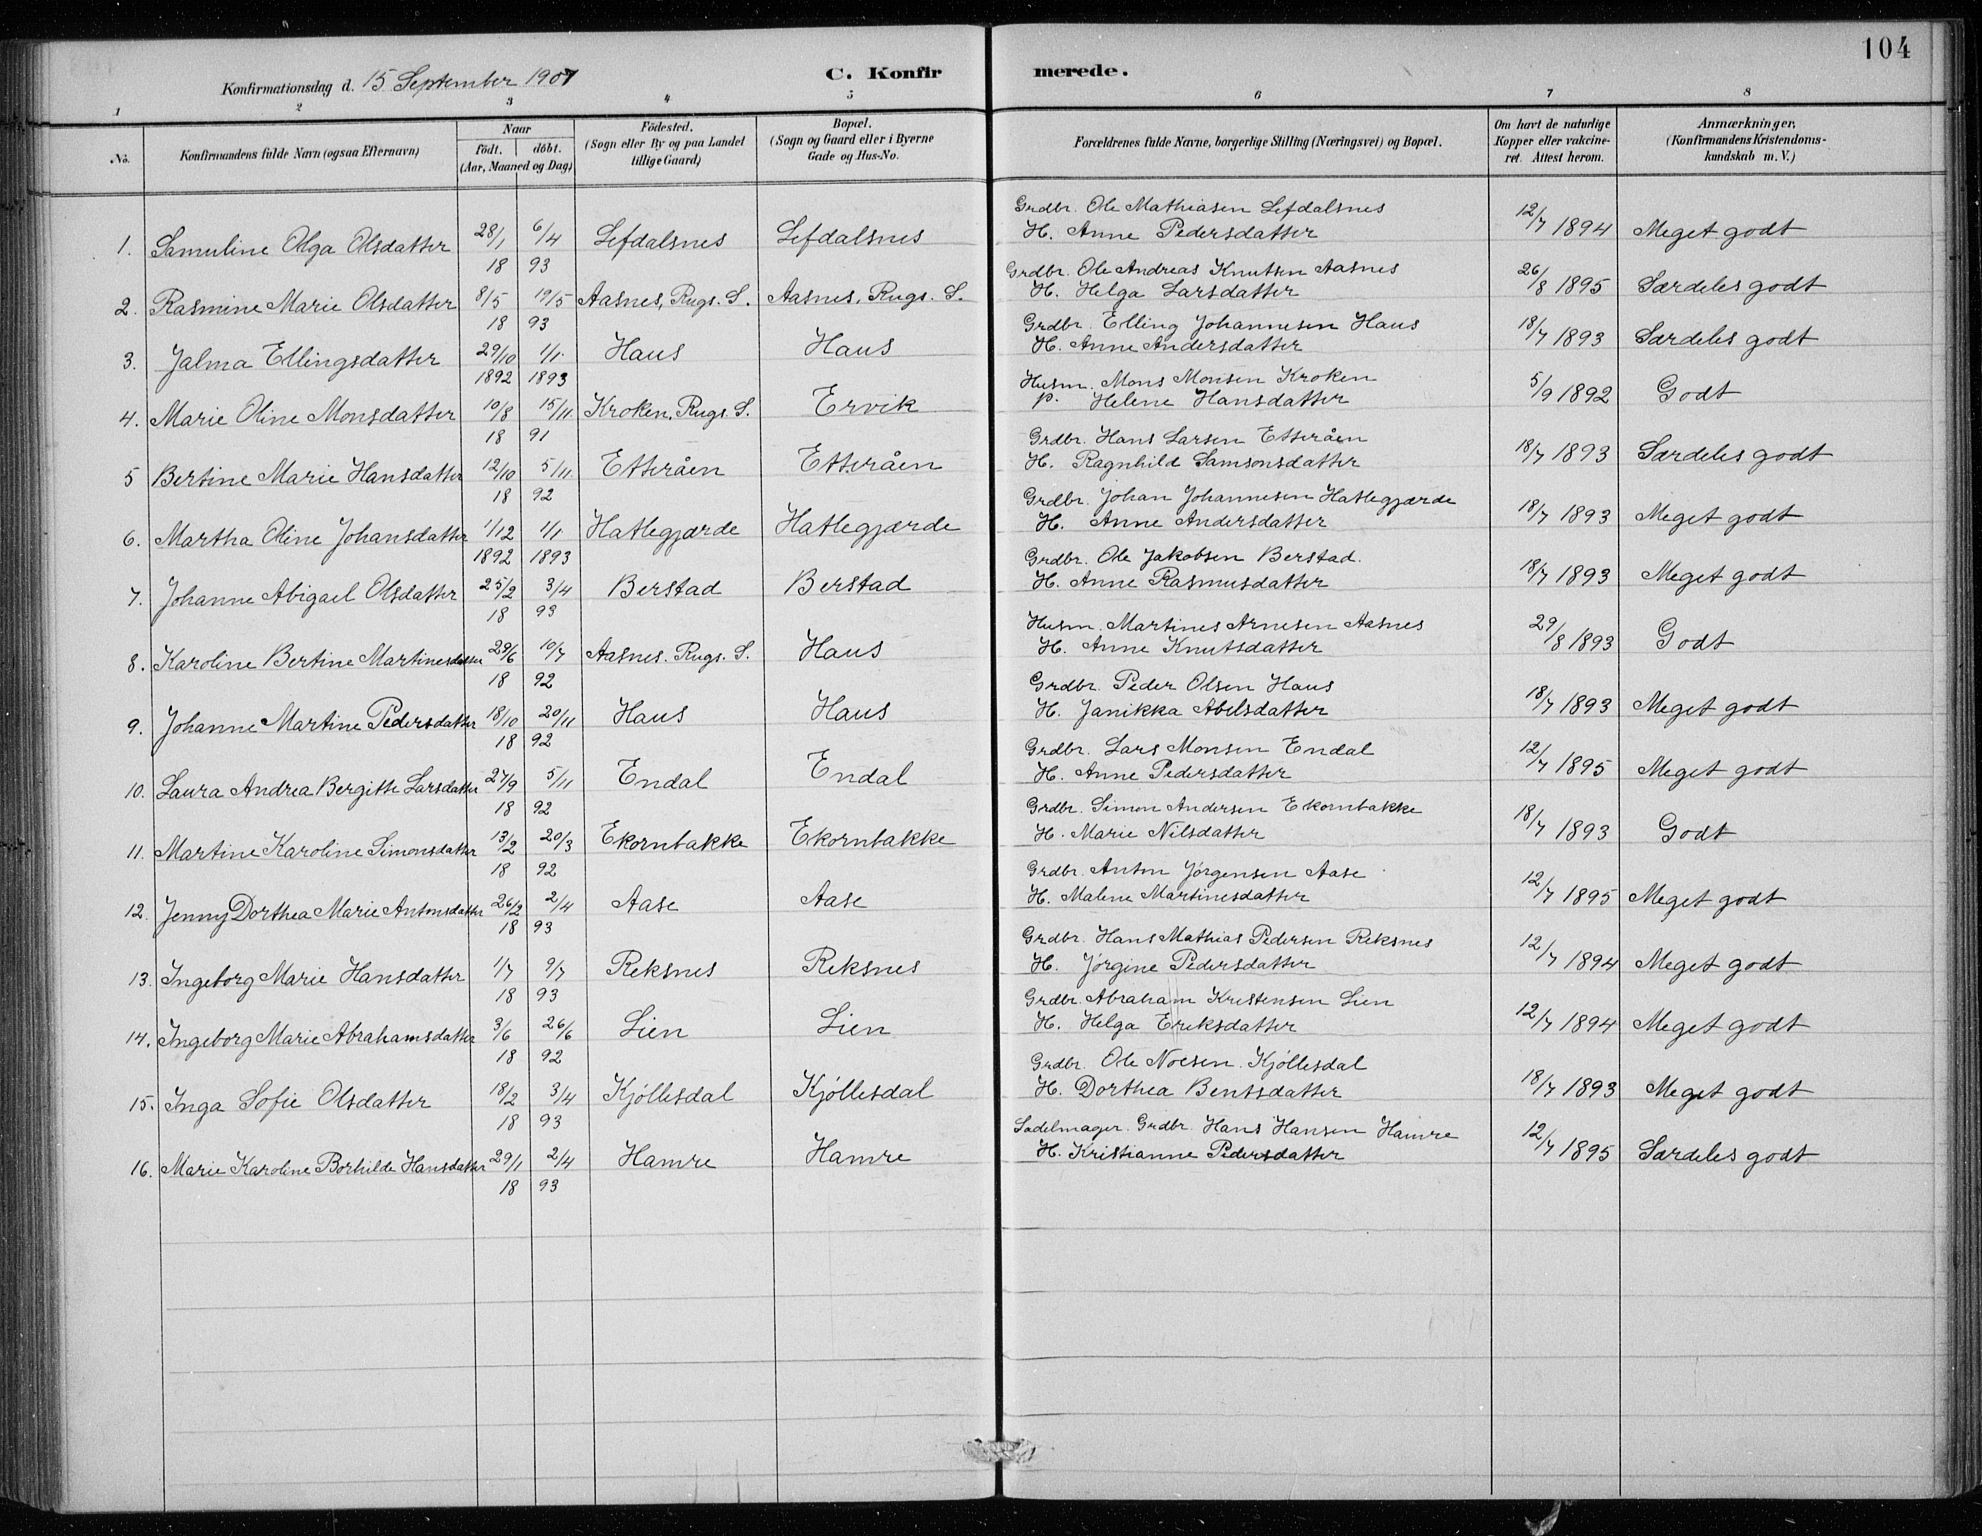 104
Konfirmationsdag d. 15 September 1907
C. Konfirmerede.
1 2 3 4 5 6 7 8
No. Konfirmandens fulde Navn (ogsaa Efternavn) Naar födt. döbt. (Aar, Maaned og Dag) Födested. (Sogn eller By og paa Landet tillige Gaard) Bopæl. (Sogn og Gaard eller i Byerne Gade og Hus-No. Forældrenes fulde Navne, borgerlige Stilling (Næringsvei) og Bopæl. Om havt de naturlige Kopper eller vakcineret. Attest herom. Anmærkninger. (Konfirmandens Kristendomskundskab m. V.)
Grdbr. Ole Mathiasen Lefdalsnes
1. Samuline Olga Olsdatter 28/1 6/4 Lefdalsnes Lefdalsnes H. Anne Pedersdatter 12/7 1894 Meget godt
18 93
Grdbr. Ole Andreas Knutsen Aasnes
2. Rasmine Marie Olsdatter 8/5 19/5 Aasnes, Rugs. S. Aasnes, Rugs. S. H. Helga Larsdatter 26/8 1895 Særdeles godt
18 93
Grdbr. Elling Johannesen Haus
3. Jalma Ellingsdatter 29/10 1/1 Haus Haus H. Anne Andersdatter 18/7 1893 Særdeles godt
1892 1893
Husm. Mons Monsen Kroken
4. Marie Oline Monsdatter 10/8 15/11 Kroken, Rugs. S. Ervik P. Helene Hansdatter 5/9 1892 Godt
18 91
Grdbr. Hans Larsen Etteråen
5 Bertine Marie Hansdatter 12/10 5/11 Etteråen Etteråen H. Ragnhild Samsonsdatter 18/7 1893 Særdeles godt
18 92
Grdbr. Johan Johannesen Hatlegjærde
6. Martha Oline Johansdatter 1/12 1/1 Hatlegjærde Hatlegjærde H. Anne Andersdatter 18/7 1893 Meget godt
1892 1893
Grdbr. Ole Jakobsen Berstad.
7. Johanne Abigael Olsdatter 25/2 3/4 Berstad Berstad H. Anne Rasmusdatter 18/7 1893 Meget godt
18 93
Husm. Martines Arnesen Aasnes
8. Karoline Bertine Martinesdatter 29/6 10/7 Aasnes. Rugs. S. Haus H. Anne Knutsdatter 29/8 1893 Godt
18 92
Grdbr. Peder Olsen Haus
9. Johanne Martine Pedersdatter 18/10 20/11 Haus Haus H. Janikka Abelsdatter 18/7 1893 Meget godt
18 92
Grdbr. Lars Monsen Endal
10. Laura Andrea Bergitte Larsdatter 27/9 5/11 Endal Endal H. Anne Pedersdatter 12/7 1895 Meget godt
18 92
Grdbr. Simon Andersen Ekornbakke
11. Martine Karoline Simonsdatter 13/2 20/3 Ekornbakke Ekornbakke H. Marie Nilsdatter 18/7 1893 Godt
18 92
Grdbr. Anton Jørgensen Aase
12. Jenny Dorthea Marie Antonsdatter 26/2 2/4 Aase Aase H. Malene Martinesdatter 12/7 1895 Meget godt
18 93
Grdbr. Hans Mathias Pedersen Reksnes
13. Ingeborg Marie Hansdatter 1/7 9/7 Reksnes Reksnes H. Jørgine Pedersdatter 12/7 1894 Meget godt
18 93
Grdbr. Abraham Kristensen Lien
14. Ingeborg Marie Abrahamsdatter 3/6 26/6 Lien Lien H. Helga Eriksdatter 12/7 1894 Meget godt
18 92
Grdbr. Ole Noesen Kjøllesdal
15. Inga Sofie Olsdatter 18/2 3/4 Kjøllesdal Kjøllesdal H. Dorthea Bentsdatter 18/7 1893 Meget godt
18 93
Sadelmager. Grdbr. Hans Hansen Hamre
16. Marie Karoline Borhilde Hansdatter 29/1 2/4 Hamre Hamre H. Kristianne Pedersdatter 12/7 1895 Særdeles godt
18 93